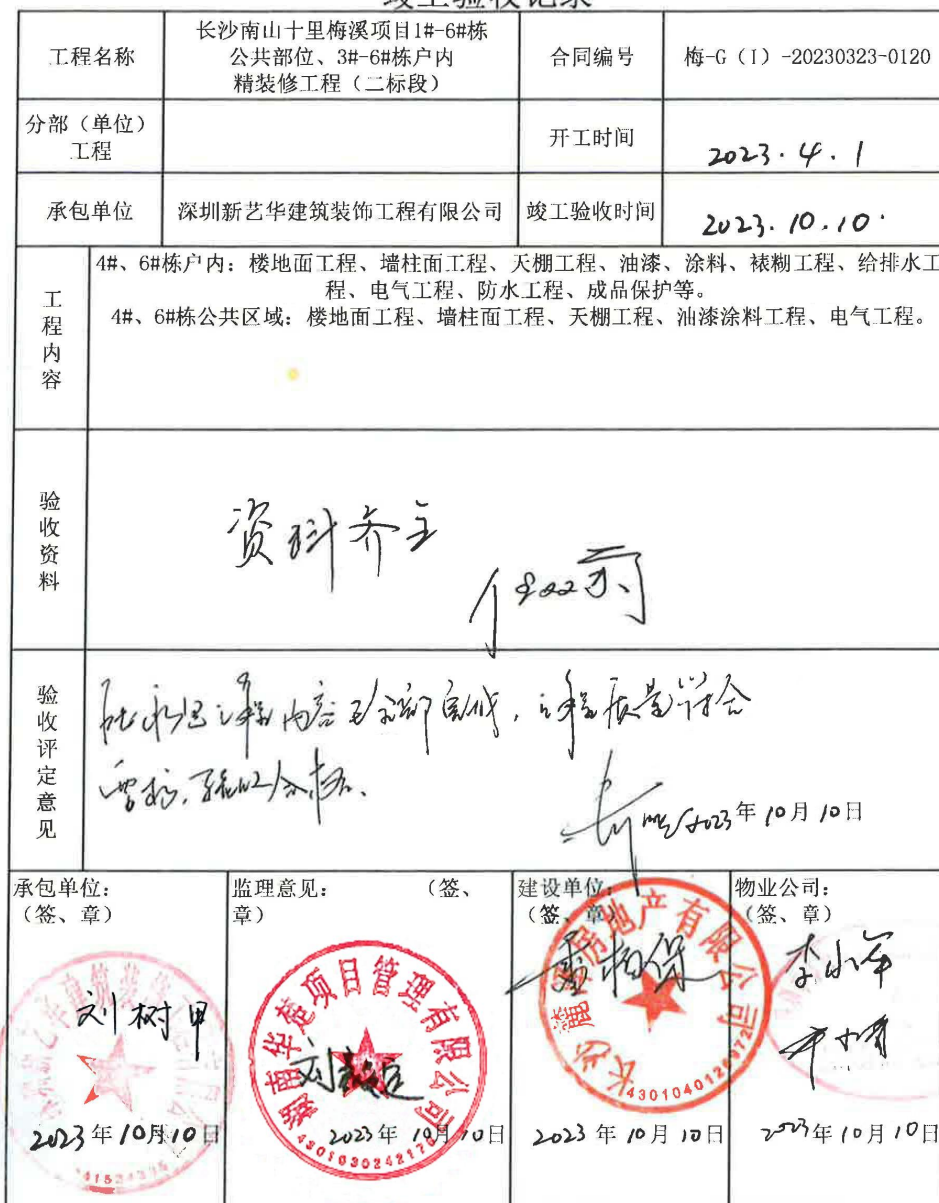 竣工验收记录
工程名称
长沙南山十里梅溪项目1#-6#栋
公共部位、3#-6#栋户内
精装修工程（二标段）
合同编号
梅-G（I）-20230323-0120
分部（单位）
工程
开工时间
2023.4.1
承包单位
深圳新艺华建筑装饰工程有限公司
竣工验收时间
2023.10.10.
工程内容
4#、6#栋户内：楼地面工程、墙柱面工程、天棚工程、油漆、涂料、裱糊工程、给排水工
程、电气工程、防水工程、成品保护等。
4#、6#栋公共区域：楼地面工程、墙柱面工程、天棚工程、油漆涂料工程、电气工程。
验收资料
资料齐全
验收评定意见
内容已全部完成，工程质量符合
要求，验收合格。
2023年10月10日
承包单位：
（签、章）
刘树甲
2023年10月10日
监理意见： （签、
章）
湖南华楚项目管理有限公司
2023年10月10日
建设单位：
（签、章）
房地产有限公司
雷柏保
2023年10月10日
物业公司：
（签、章）
2023年10月10日